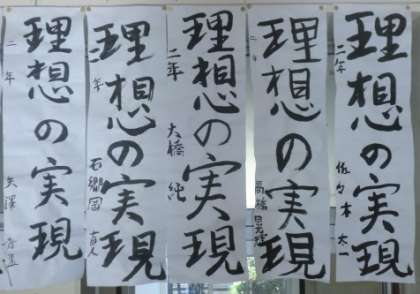 理想の実現
二年 佐々木 太一
理想の実現
二年 高橋
理想の実現
二年 大橋 純
理想の実現
二年 石郷岡 直人
理想の実現
二年 矢澤